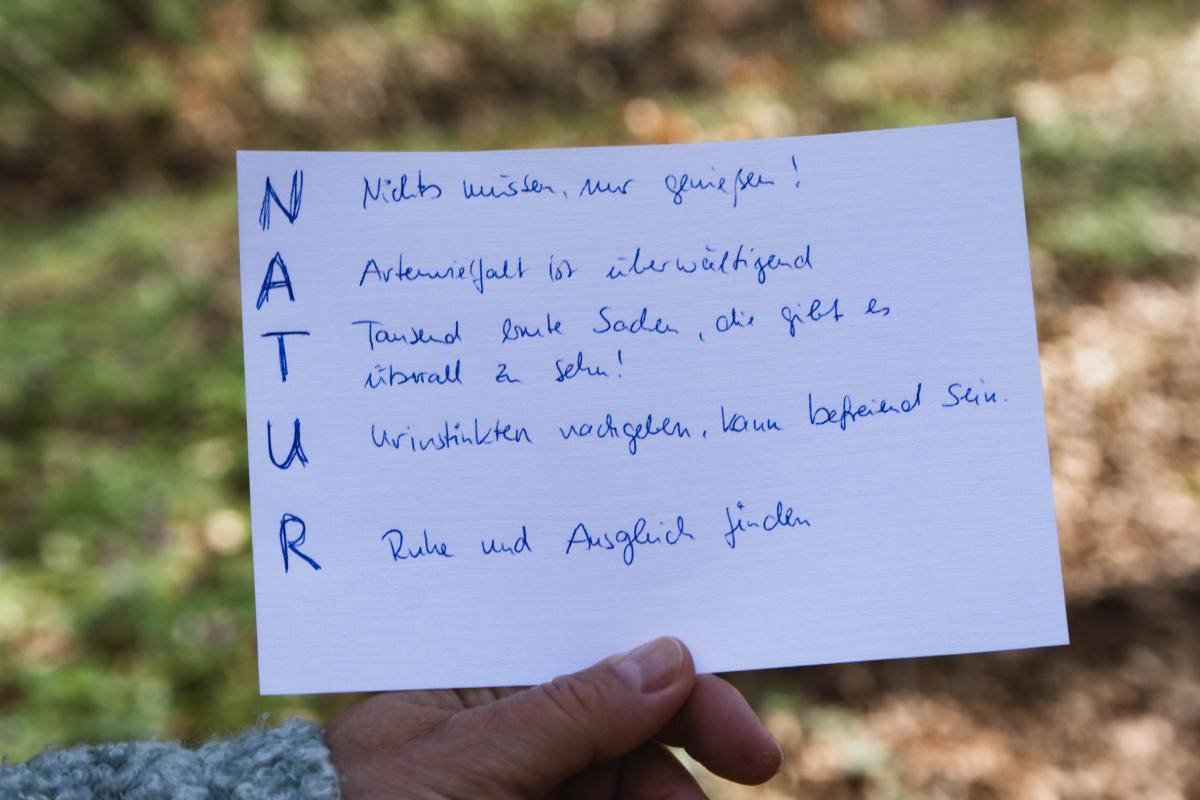 N Nichts müssen, nur genießen!
A Artenvielfalt ist überwältigend
T Tausend bunte Sachen, die gibt es
überall zu sehn!
U Urinstinkten nachgeben, kann befreiend sein.
R Ruhe und Ausgleich finden